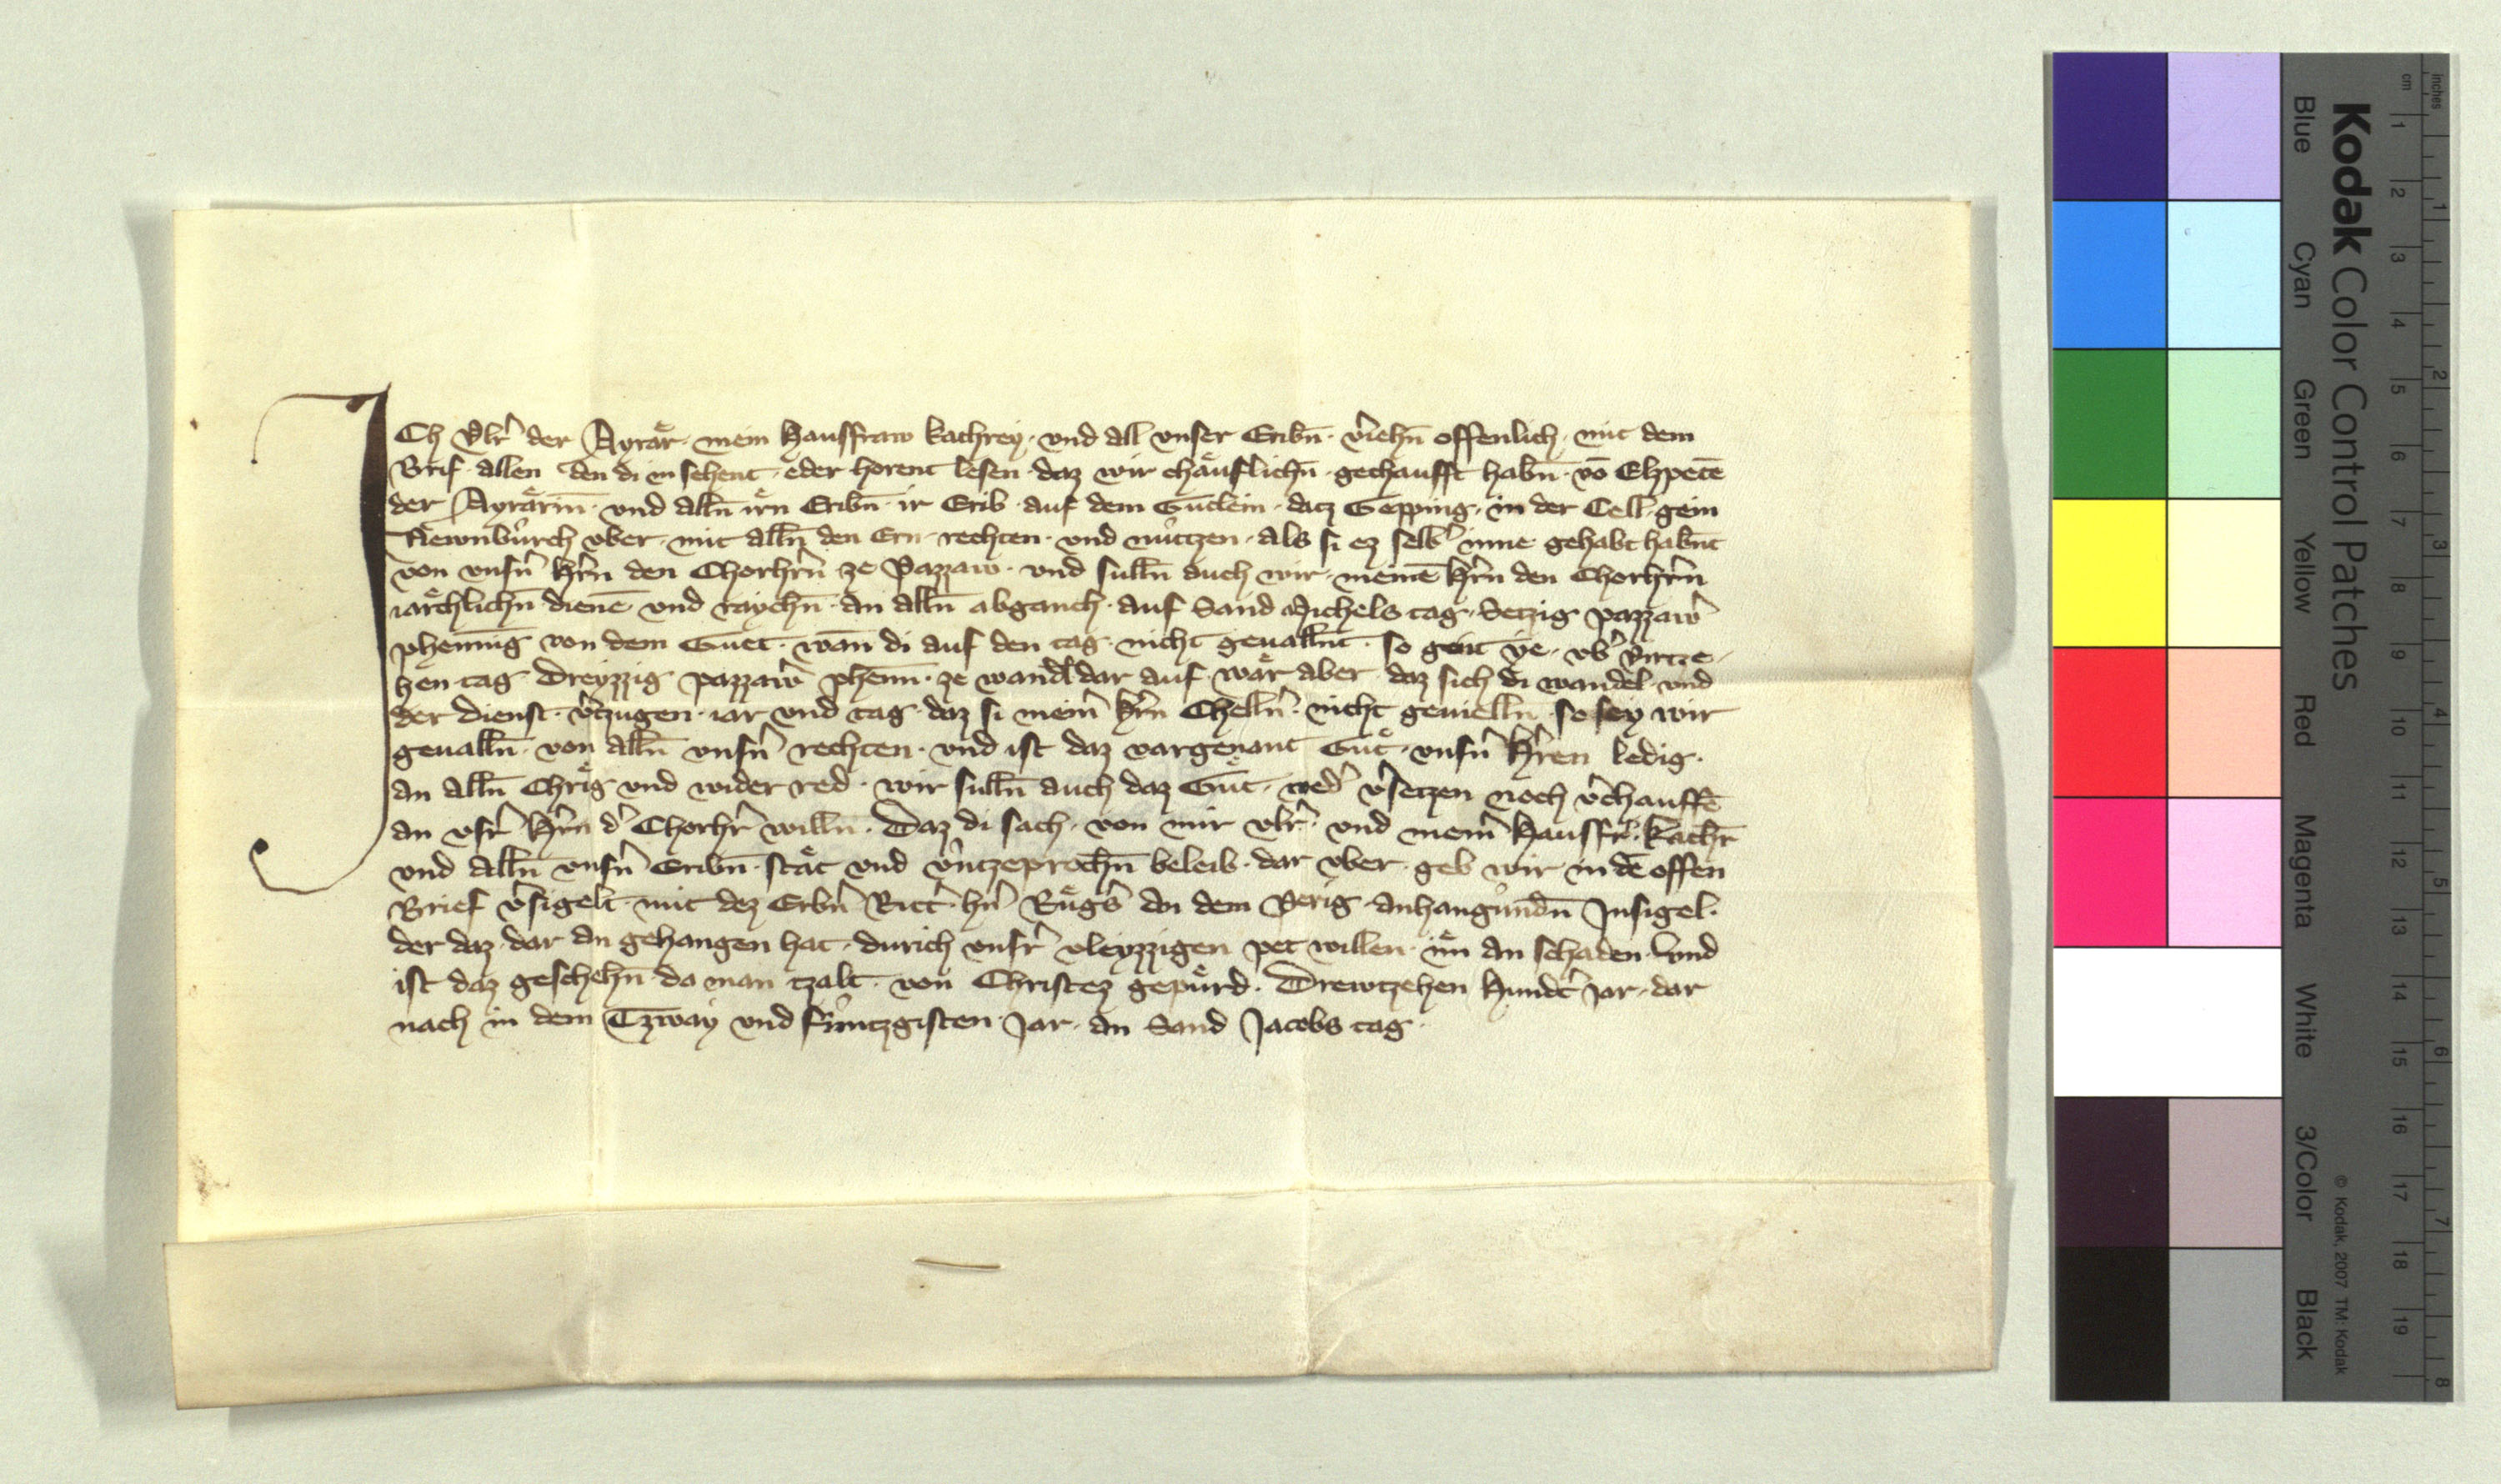 ICh Vlr̄ der Ayraͤr · mein Hausfraw kathrey · vnd all vnser Eribn̄ · v̄iehn̄ offenlich · mit dem
Brif · allen den di in sehent · eder horent lesen · daz wir chaͤuflichn̄ · gechaufft habn̄ · vō Elzpetē
der Ayraͤrin̄ · vnd alln̄ irn̄ Eribn̄ · ir Erib · auf dem Guͤtlein · datz Gepping · in der Cell · gein
Newnbuͤrch vber · mit alln̄ den Ern · rechten · vnd nuͤtzen · als si ez selb̄ inne gehabt habn̄t
von vnsn̄ hr̄n den Chorhr̄n ze Pazzaw · vnd sulln̄ auch wir · meinē hr̄n den Chorhr̄n
iaͤrchlichn̄ dienē vnd raychn̄ · an alln̄ abganch · auf Sand Michels tag · Setzig pazzaw̄
phenning von dem Guet · wan di auf den tag · nicht geualln̄t · so gent ye · vb̄ virtze
hen tag Dreyzzig pazzaw̄ phenn̄ · ze wandl dar auf · waͤr aber · daz sich di wandel · vnd
der Dienst · v̄tzugen · iar vnd tag · daz si mein̄ hr̄n Chelln̄ · nicht geuielln̄ · so sey wir
geualln̄ · von alln̄ vnsn̄ rechten · vnd ist daz vargenant Guͤt · vnsn̄ hr̄ren ledig ·
an alln̄ Chrig vnd wider red · wir sulln̄ auch daz Guͤt · wed̄ v̄setzen noch v̄chauffē
an vsr̄ hr̄n d̄ Chorhr̄ willn̄ · Daz di sach · von mir vlr̄ · vnd mein̄ Hausfr̄ · kathr̄
vnd alln̄ vnsn̄ Eribn̄ · staͤt vnd vn̄tzeprochn̄ beleib · dar vber · geb wir in dē offen
Brief v̄sigelt · mit dez Erbn̄ Ritt̄ · hn̄ Ruͤgs̄ an dem Perig · anhangundn̄ Insigel ·
der daz · dar an gehangen hat · durich vnsr̄ vleyzzigen pet willen · im̄ an schaden · vnd
ist daz geschehn̄ · da man tzalt · von Christez gepuͤrd · Drewtzehen hundt̄ Jar · dar
nach in dem Tzway vnd fuͤnftzgisten · Jar · an Sand Jacobs tag ·
Kodak Color Control Patches
Blue Cyan Green Yellow Red Magenta White 3/Color Black
© Kodak, 2007 TM: Kodak
inches 1 2 3 4 5 6 7 8
cm 1 2 3 4 5 6 7 8 9 10 11 12 13 14 15 16 17 18 19